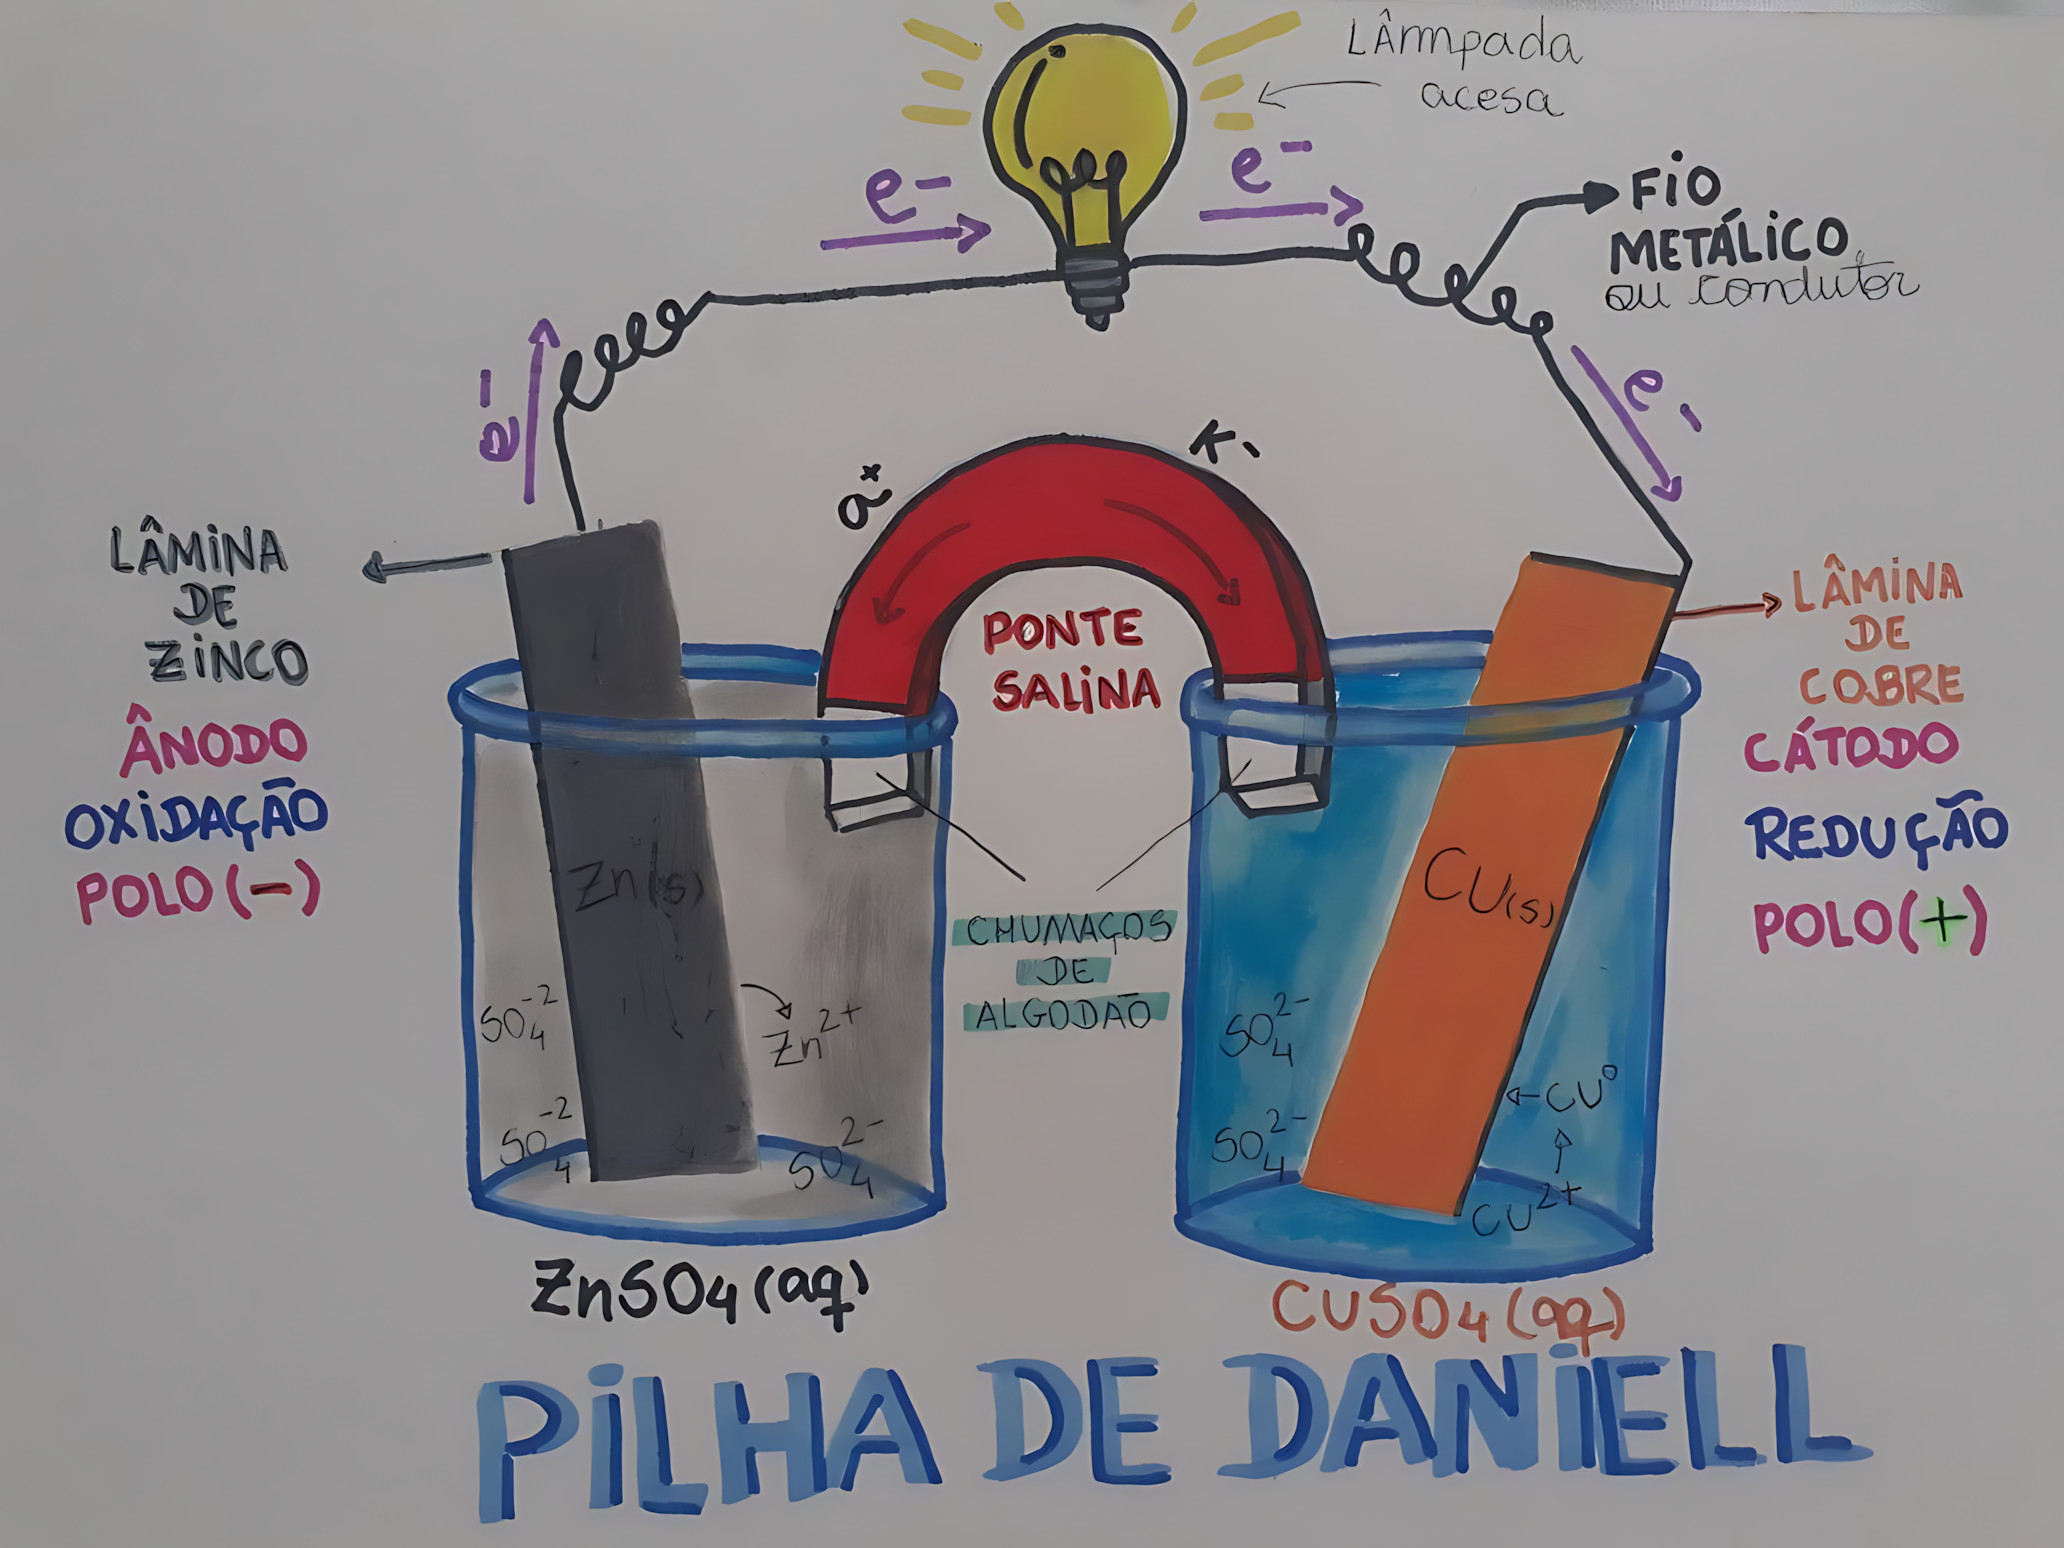 LÂmpada
acesa
e-
e-
FiO
METÁLiCO
ou condutor
e-
e-
a+
K-
LÂMiNA
DE
ZiNCO
ÂNODO
OXiDAÇÃO
POLO (-)
PONTE
SALiNA
LÂMiNA
DE
COBRE
CÁTODO
REDUÇÃO
POLO (+)
Zn(s)
CU(s)
CHUMAÇOS
DE
ALGODÃO
SO4-2
Zn2+
SO4-2
SO42-
SO42-
SO42-
CU0
CU2+
ZnSO4(aq)
CUSO4(aq)
PiLHA DE DANiELL